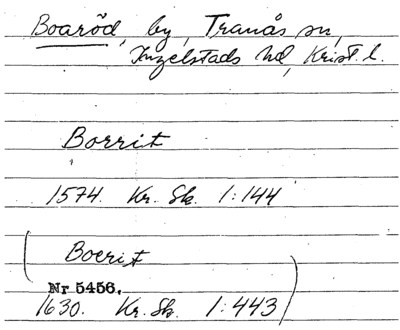 Boaröd, by, Tranås sn,
Ingelstads hd, Krist. l.
Borrit
1574. Kr. Sk. 1:144
(Boerit
Nr 5456.
1630. Kr. Sk. 1:443)